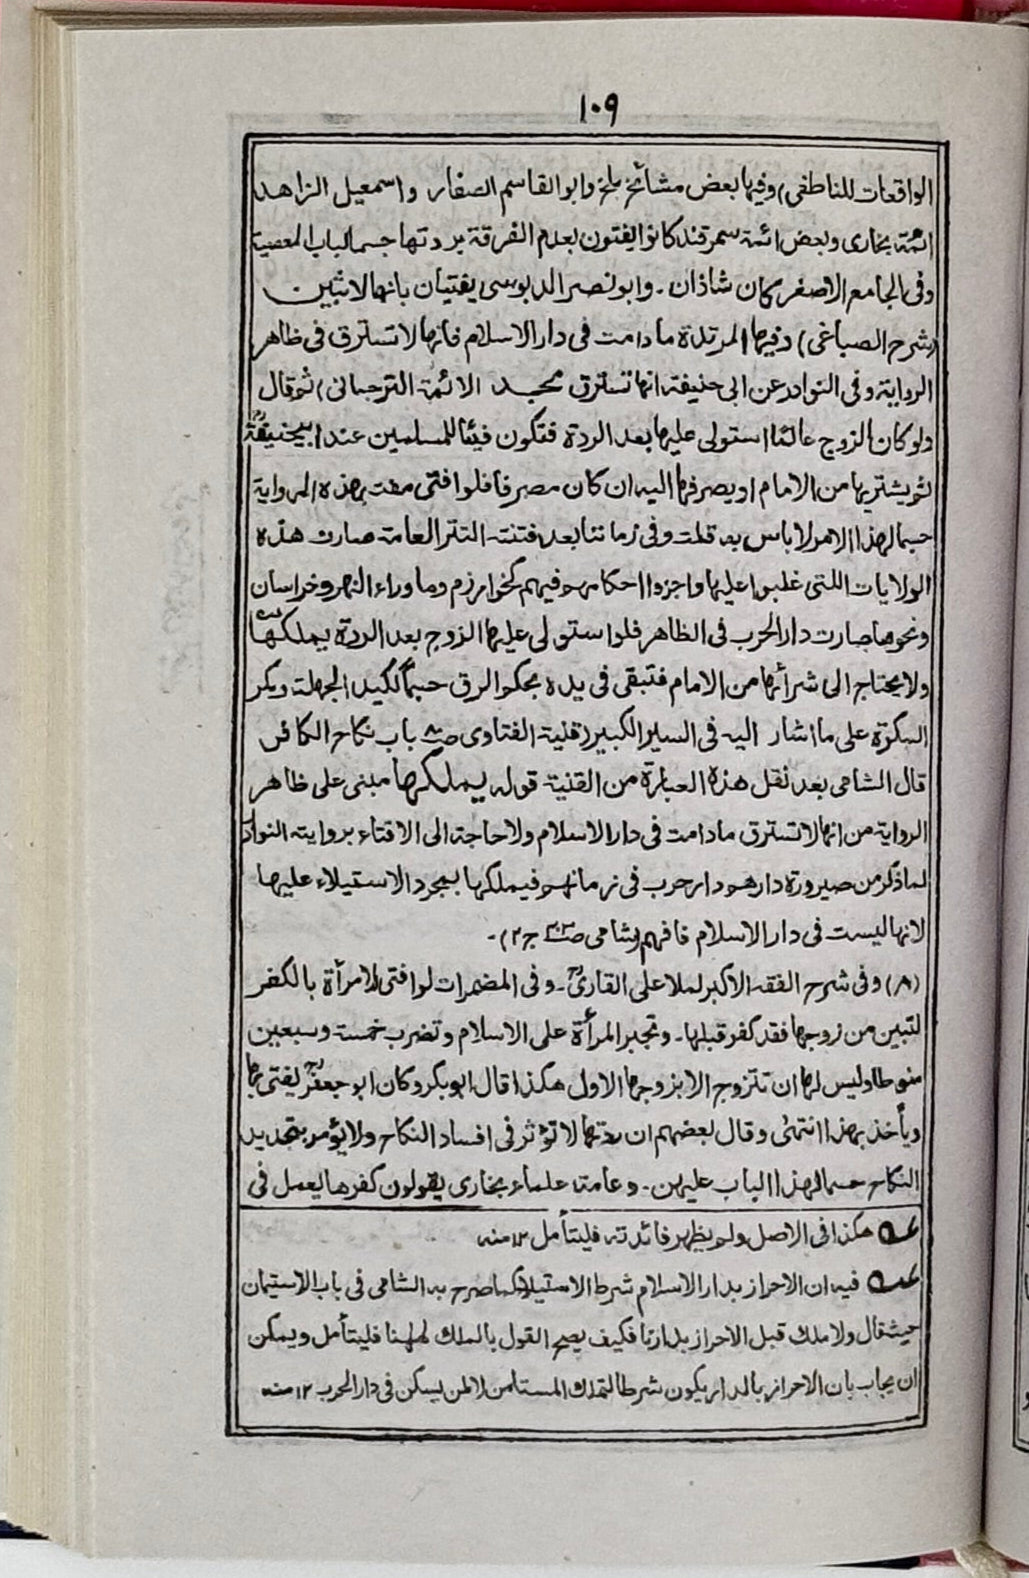 ١٠٩
الواقعات للناطفی) وفیها بعض مشائخ بلخ وابو القاسم الصفار واسمعیل الزاهد
ائمة بخاری وبعض ائمة سمرقند کانوا یفتون بعدم الفرقة بردتها حسما لباب المعصیة
وفی الجامع الاصغر کان شاذان ۔ وابو نصر الدبوسی یفتیان بانها لا تبین
(شرح الصباغی) وفیها المرتدة مادامت فی دار الاسلام فانها لا تسترق فی ظاهر
الروایة وفی النوادر عن ابی حنیفة انها تسترق مجد الائمة الترجمانی) ثم قال
ولو کان الزوج عالما استولی علیها بعد الردة فتکون فیئا للمسلمین عند ابیحنیفة
ثم یشتریها من الامام او یصرفها الیه ان کان مصرفا فلو افتی مفت بهذه الروایة
حسما لهذا الامر لا باس به قلت وفی زماننا بعد فتنة التتر العامة صارت هذه
الولایات اللتی غلبوا علیها واجروا احکامهم فیهم کخوارزم وما وراء النهر وخراسان
ونحوها صارت دار الحرب فی الظاهر فلو استولی علیها الزوج بعد الردة یملکها
ولا یحتاج الی شرائها من الامام فتبقی فی یده بحکم الرق حسما لکید الجهلة ومکر
المکرة علی ما اشار الیه فی السیر الکبیر (قنیة الفتاوی باب نکاح الکافر
قال الشامی بعد نقل هذه العبارة من القنیة قوله یملکها مبنی علی ظاهر
الروایة من انها لا تسترق مادامت فی دار الاسلام ولا حاجة الی الافتاء بروایة النوادر
لما ذکر من صیرورة دارهم دار حرب فی زمانهم فیملکها بمجرد الاستیلاء علیها
لانها لیست فی دار الاسلام فافهم (شامی ج ٢) ۔
(٨) وفی شرح الفقه الاکبر لملا علی القاری ۔ وفی المضمرات لو افتی لامرأة بالکفر
لتبین من زوجها فقد کفر قبلها ۔ وتجبر المرأة علی الاسلام وتضرب خمسة وسبعین
سوطا ولیس لها ان تتزوج الا بزوجها الاول هکذا قال ابو بکر وکان ابو جعفر یفتی بها
ویأخذ بهذا انتهی وقال بعضهم ان ردتها لا تؤثر فی افساد النکاح ولا یؤمر بتجدید
النکاح حسما لهذا الباب علیهن ۔ وعامة علماء بخاری یقولون کفرها یعمل فی
عه هکذا فی الاصل ولم یظهر فائدته فلیتأمل ١٢ منه
عه فیه ان الاحراز بدار الاسلام شرط الاستیلاء کما صرح به الشامی فی باب الاستیمان
حیث قال ولا ملك قبل الاحراز بدارنا فکیف یصح القول بالملك ههنا فلیتأمل ویمکن
ان یجاب بان الاحراز بالدار یکون شرطا لتملك المستامن لا لمن یسکن فی دار الحرب ١٢ منه